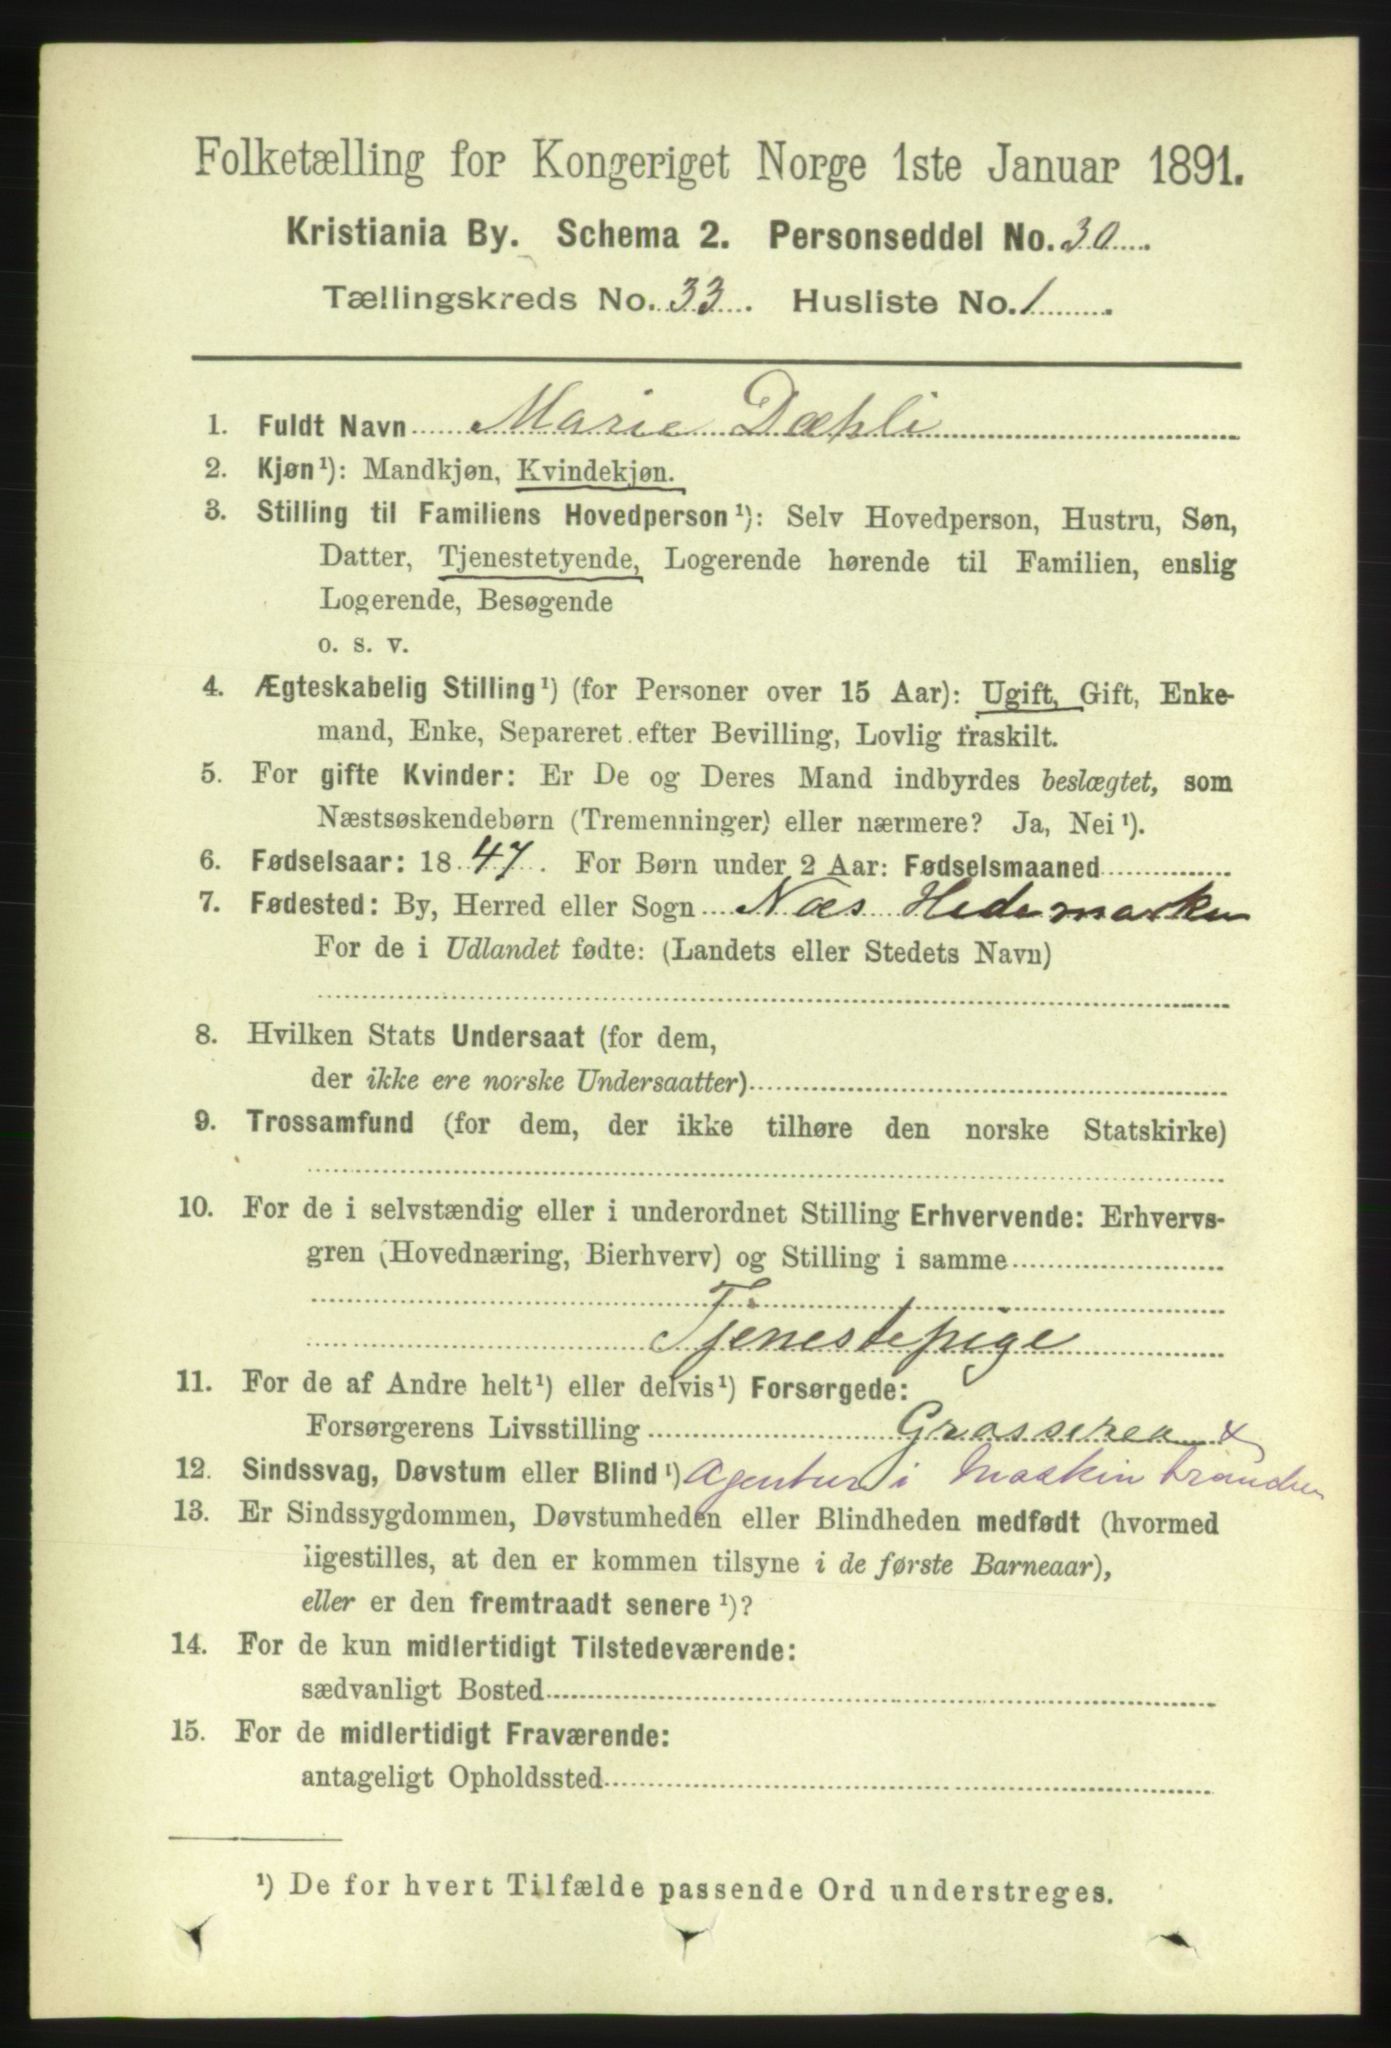 Folketælling for Kongeriget Norge 1ste Januar 1891.
Kristiania By. Schema 2. Personseddel No. 30.
Tællingskreds No. 33. Husliste No. 1.
1. Fuldt Navn Marie Dæhli
2. Kjøn¹): Mandkjøn, Kvindekjøn.
3. Stilling til Familiens Hovedperson¹): Selv Hovedperson, Hustru, Søn,
Datter, Tjenestetyende, Logerende hørende til Familien, enslig
Logerende, Besøgende
o. s. v.
4. Ægteskabelig Stilling¹) (for Personer over 15 Aar): Ugift, Gift, Enke-
mand, Enke, Separeret efter Bevilling, Lovlig fraskilt.
5. For gifte Kvinder: Er De og Deres Mand indbyrdes beslægtet, som
Næstsøskendebørn (Tremenninger) eller nærmere? Ja, Nei¹).
6. Fødselsaar: 1847. For Børn under 2 Aar: Fødselsmaaned
7. Fødested: By, Herred eller Sogn Næs Hedemarken
For de i Udlandet fødte: (Landets eller Stedets Navn)
8. Hvilken Stats Undersaat (for dem,
der ikke ere norske Undersaatter)
9. Trossamfund (for dem, der ikke tilhøre den norske Statskirke)
10. For de i selvstændig eller i underordnet Stilling Erhvervende: Erhvervs-
gren (Hovednæring, Bierhverv) og Stilling i samme
Tjenestepige
11. For de af Andre helt¹) eller delvis¹) Forsørgede:
Forsørgerens Livsstilling
12. Sindssvag, Døvstum eller Blind¹) Agentur i Maskin
13. Er Sindssygdommen, Døvstumheden eller Blindheden medfødt (hvormed
ligestilles, at den er kommen tilsyne i de første Barneaar),
eller er den fremtraadt senere¹)?
14. For de kun midlertidigt Tilstedeværende:
sædvanligt Bosted
15. For de midlertidigt Fraværende:
antageligt Opholdssted
¹) De for hvert Tilfælde passende Ord understreges.